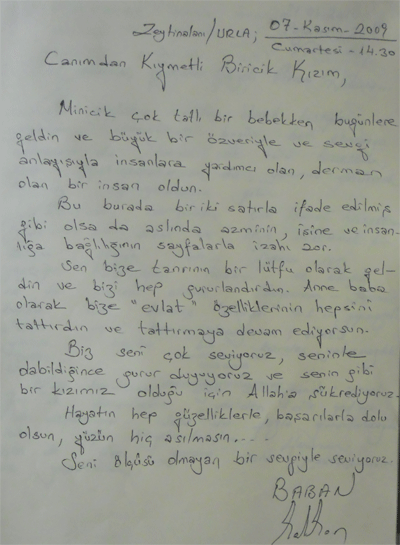 Zeytinalanı/URLA; 07-Kasım-2009
Cumartesi-14.30
Canımdan Kıymetli Biricik Kızım,
Minicik çok tatlı bir bebekken bugünlere
geldin ve büyük bir özveriyle ve sevgi
anlayışıyla insanlara yardımcı olan, derman
olan bir insan oldun.
Bu burada bir iki satırla ifade edilmiş
gibi olsa da aslında azminin, işine ve insan-
lığa bağlılığının sayfalarla izahı zor.
Sen bize tanrının bir lütfu olarak gel-
din ve bizi hep gururlandırdın. Anne baba
olarak bize "evlat" özelliklerinin hepsini
tattırdın ve tattırmaya devam ediyorsun.
Biz seni çok seviyoruz, seninle
dabildiğince gurur duyuyoruz ve senin gibi
bir kızımız olduğu için Allah'a şükrediyoruz.
Hayatın hep güzelliklerle, başarılarla dolu
olsun, yüzün hiç asılmasın....
Seni ölçüsü olmayan bir sevgiyle seviyoruz.
BABAN